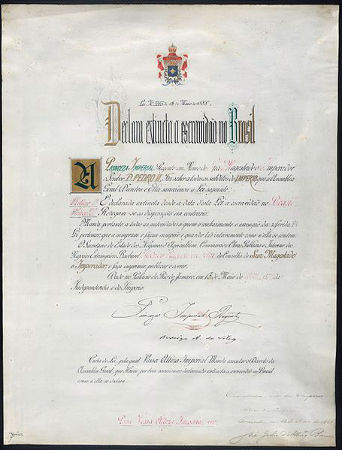 Lei N. 3353 de 13 de Maio de 1888.
Declara extincta a escravidão no Brasil
A Princeza Imperial Regente em Nome de Sua Magestade o Imperador
Senhor D. PEDRO II, faz saber a todos os subditos do IMPERIO que a Assembléa
Geral decretou e Ella sanccionou a Lei seguinte:
Artigo 1º É declarada extincta desde a data desta Lei a escravidão no Brasil.
Artigo 2º Revogam-se as disposições em contrario.
Manda portanto a todas as autoridades a quem o conhecimento e execução da referida Lei
pertencer, que a cumpram e façam cumprir e guardar tão inteiramente como nella se contém.
O Secretario de Estado dos Negocios d'Agricultura, Commercio e Obras Publicas e Interino dos
Negocios Estrangeiros, Bacharel Rodrigo Augusto da Silva do Conselho de Sua Magestade
o Imperador, o faça imprimir, publicar e correr.
Dado no Palacio do Rio de Janeiro, em 13 de Maio de 1888, 67º da
Independencia e do Imperio.
Princeza Imperial Regente
Rodrigo A. da Silva
Carta de Lei, pela qual Vossa Alteza Imperial Manda executar o Decreto da
Assembléa Geral, que Houve por bem sanccionar declarando extincta a escravidão no Brasil
como nella se declara.
Para Vossa Alteza Imperial ver.